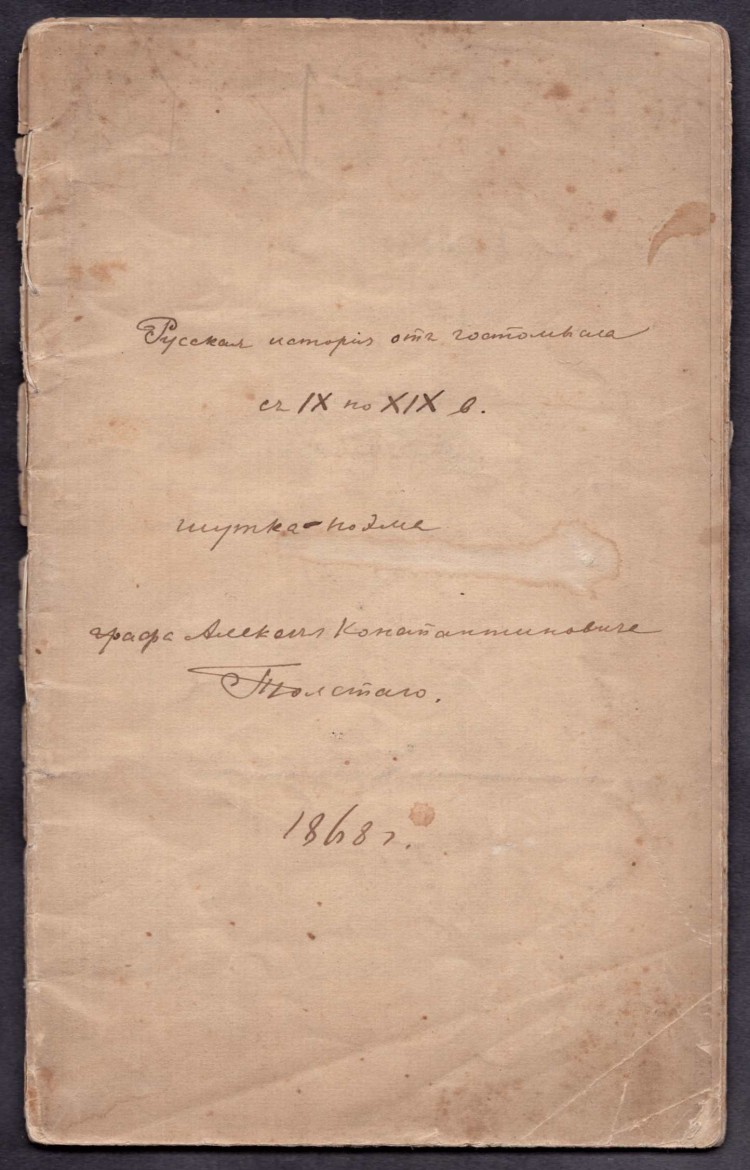 Русская исторія отъ гостомысла
съ IX по XIX в.
шутка-поэма
графа Алексѣя Константиновича
Толстаго.
1868 г.